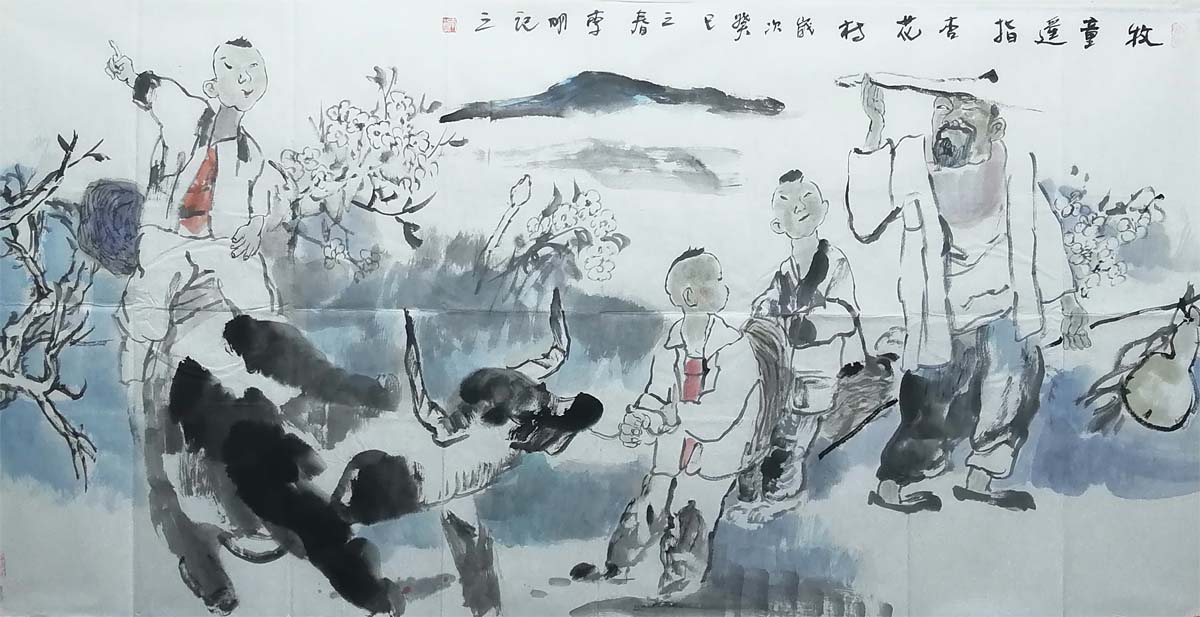 牧童遥指杏花村歲次癸巳之春李明记之